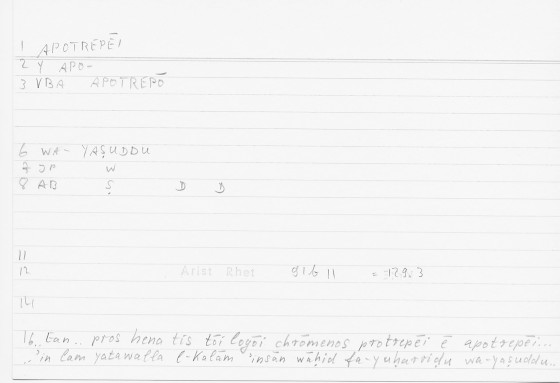 1 APOTREPĒI
2 Y APO-
3 VBA APOTREPŌ
6 WA- YAṢUDDU
7 JP W
8 AB Ṣ D D
11
12 Arist Rhet 91b 11 = 129.3
14
16.. Ean.. pros hena tis tōi logōi chrōmenos protrepēi ē apotrepēi...
..'in lam yatawalla l-Kalām 'insān wāḥid fa-yuḥarriḍu wa-yaṣuddu..